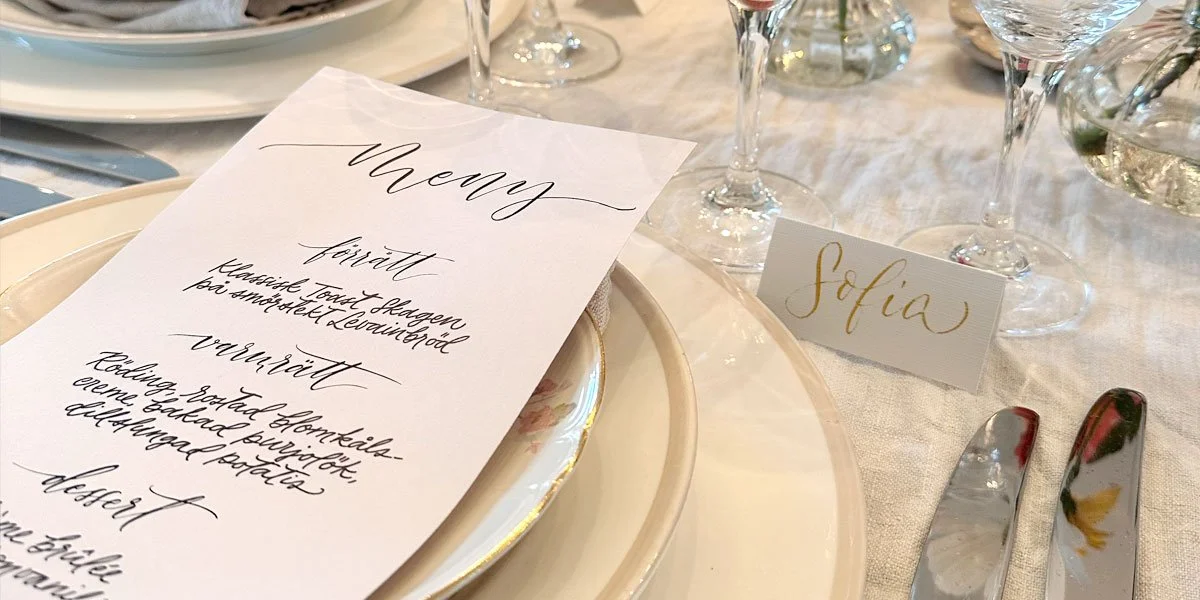 Meny
förrätt
Klassisk Toast Skagen
på smörstekt Levainbröd
varmrätt
Röding, rostad blomkåls-
creme bakad purjolök,
dillslungad potatis
dessert
brûlée
Sofia